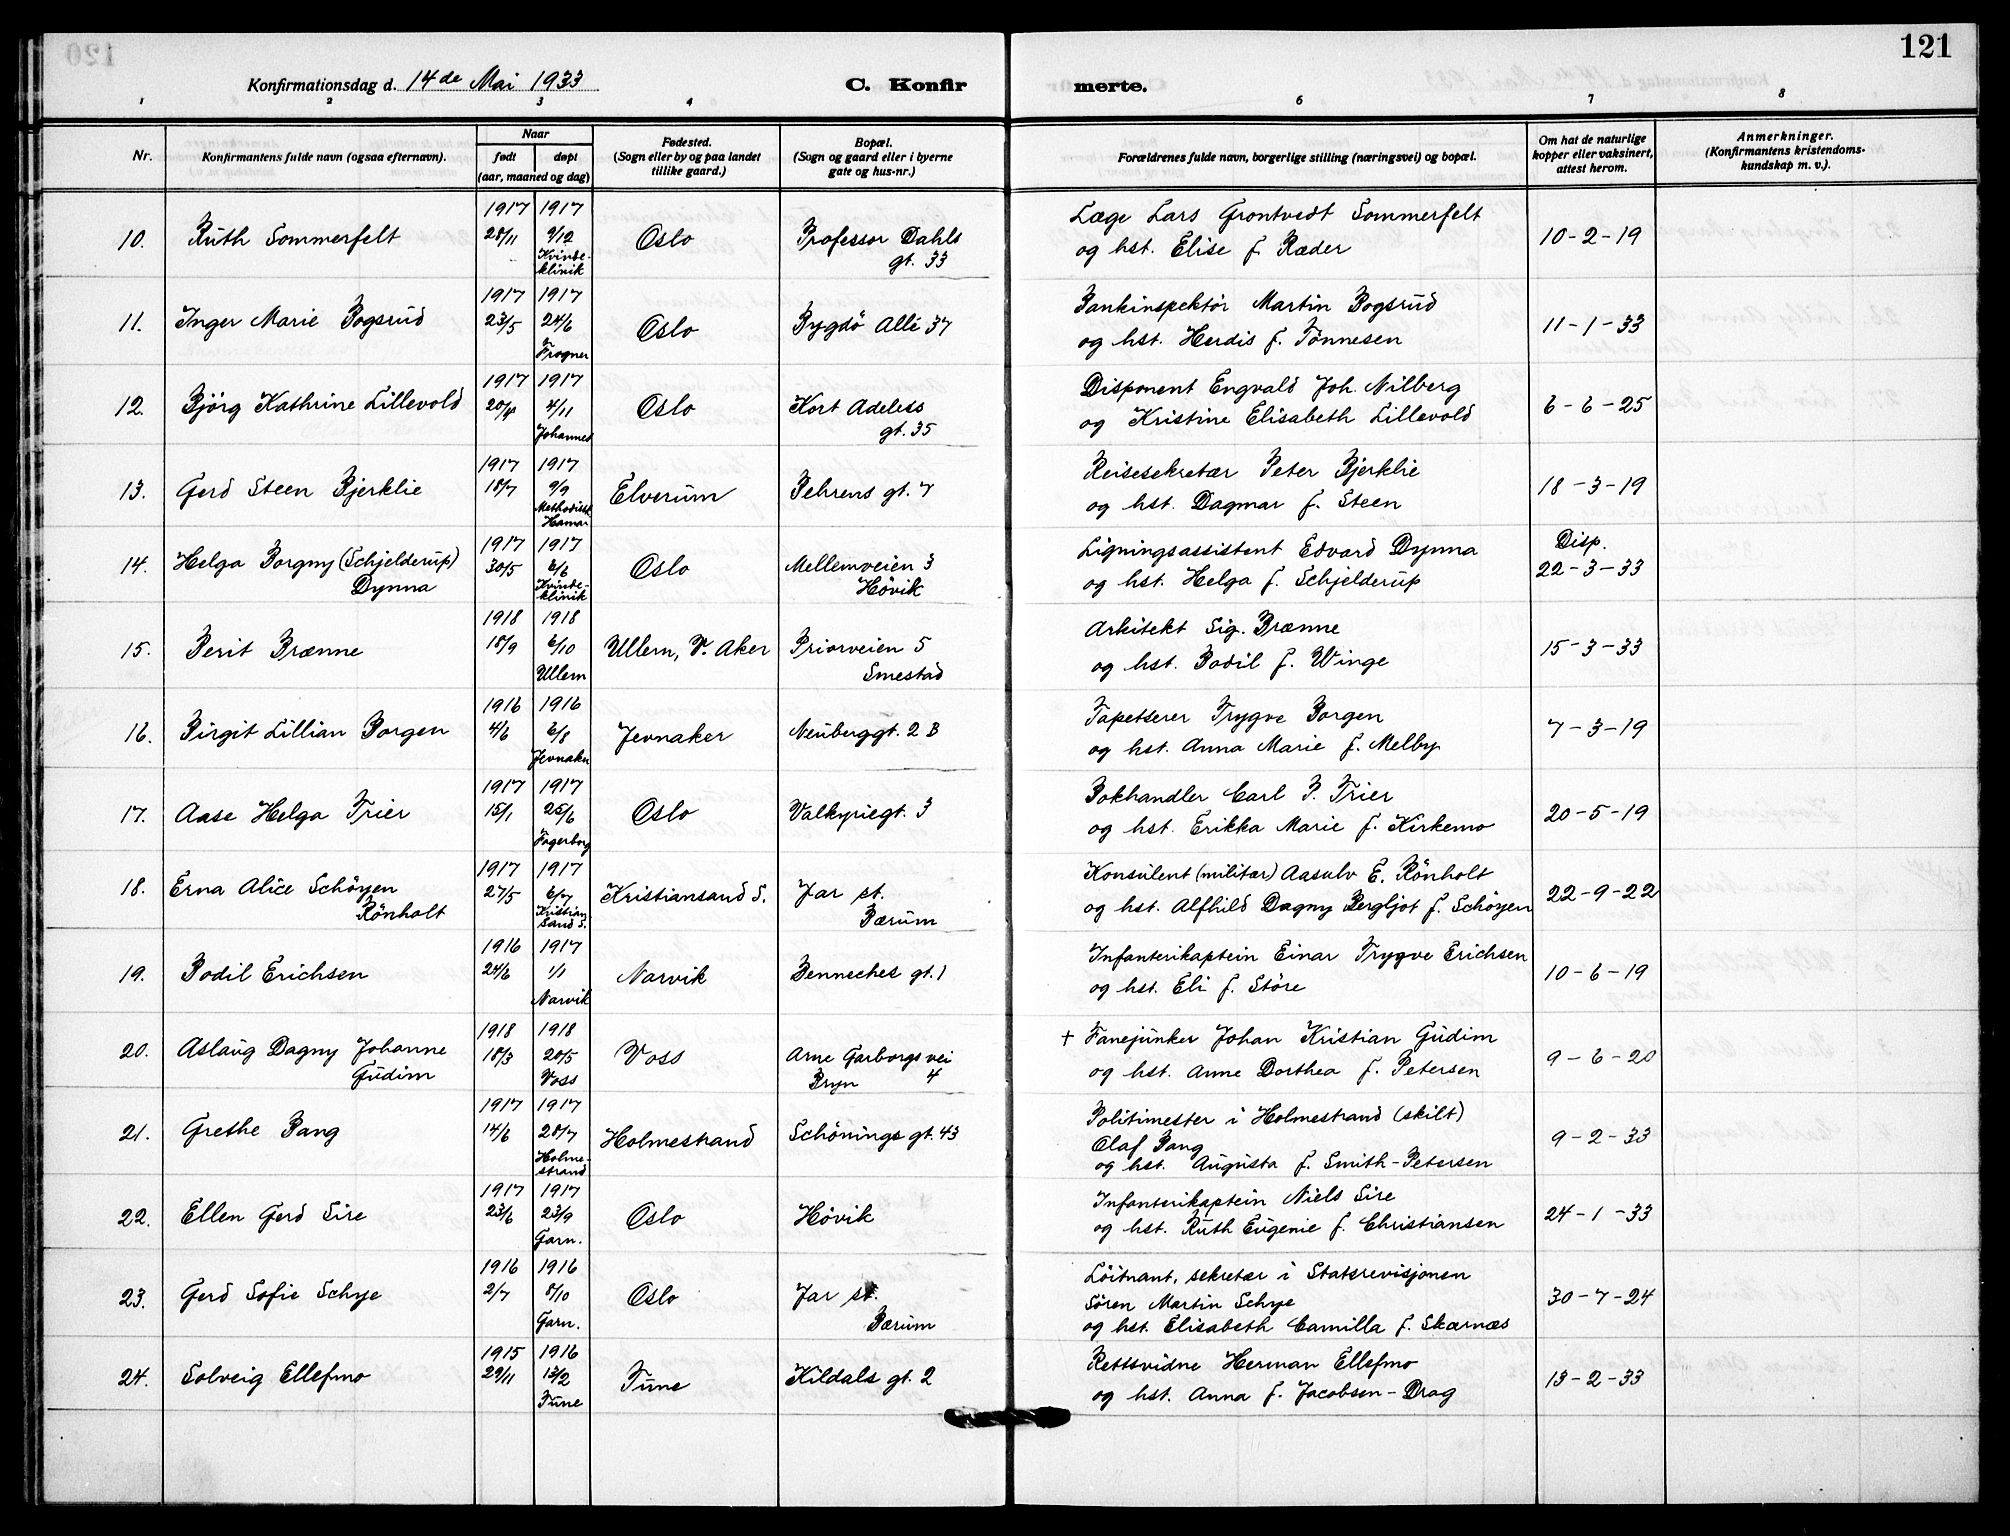 121
Konfirmationsdag d. 14de Mai 1933
C. Konfirmerte.
1 2 3 4 6 7 8
Nr.
Konfirmantens fulde navn (ogsaa efternavn).
Naar
født døpt
(aar, maaned og dag)
Fødested.
(Sogn eller by og paa landet
tillike gaard.)
Bopæl.
(Sogn og gaard eller i byerne
gate og hus-nr.)
Forældrenes fulde navn, borgerlige stilling (næringsvei) og bopæl.
Om hat de naturlige
kopper eller vaksinert,
attest herom.
Anmerkninger.
(Konfirmantens kristendoms-
kundskap m. v.).
1917 1917
10. Ruth Sommerfelt 28/11 9/12 Oslo Professor Dahls
Kvinde-
klinik
gt. 33
Læge Lars Grontvedt Sommerfelt
og hst. Elise f. Ræder
10-2-19
1917 1917
11. Inger Marie Bogsrud 23/5 24/6 Oslo Bygdö Allé 37
Frogner
Bankinspektör Martin Bogsrud
og hst. Herdis f. Tönnesen
11-1-33
1917 1917
12. Björg Kathrine Lillevold 4/11 Oslo Kort Adelers
Johannes
gt. 35
Disponent Engvald Joh. Nilberg
og Kristine Elisabeth Lillevold
6-6-25
1917 1917
13. Gerd Steen Bjerklie 18/7 9/9 Elverum Behrens gt. 7
Methodistk.
Hamar
Reisesekretær Peter Bjerklie
og hst. Dagmar f. Steen
18-3-19
1917 1917
14. Helga Borgny (Schjelderup)
Dynna
30/5 6/6 Oslo Mellemveien 3
Kvinde-
klinik
Hövik
Ligningsassistent Edvard Dynna
og hst. Helga f. Schjelderup
Disp.
22-3-33
1918 1918
15. Berit Brænne 18/9 6/10 Ullern, V. Aker Priorveien 5
Ullern
Smestad
Arkitekt Sig. Brænne
og hst. Bodil f. Winge
15-3-33
1916 1916
16. Birgit Lillian Borgen 4/6 6/8 Jevnaker Neuberggt. 2 B
Jevnaker
Tapetserer Trygve Borgen
og hst. Anna Marie f. Melby
7-3-19
1917 1917
17. Aase Helga Trier 15/1 25/6 Oslo Valkyriegt. 3
Fagerborg
Bokhandler Carl P. Trier
og hst. Erikka Marie f. Kirkemo
20-5-19
1917 1917
18. Erna Alice Schöyen
Rönholt
27/5 6/7 Kristiansand S. Jar st.
Kristian
sand S.
Bærum
Konsulent (militær) Aasulv E. Rönholt
og hst. Alfhild Dagny Bergljot f. Schöyen
22-9-22
1916 1917
19. Bodil Erichsen 24/6 1/1 Narvik Benneches gt. 1
Narvik
Infanterikaptein Einar Trygve Erichsen
og hst. Eli f. Störe
10-6-19
1918 1918
20. Aslaug Dagny Johanne
Gudim
18/3 20/5 Voss Arne Garborgs vei
Voss
Bryn 4
+ Fanejunker Johan Kristian Gudim
og hst. Anne Dorthea f. Petersen
9-6-20
1917 1917
21. Grethe Bang 14/6 28/7 Holmestrand Schönings gt. 43
Holme-
strand
Politimester i Holmestrand (skilt)
Olaf Bang
og hst. Augusta f. Smith-Petersen
9-2-33
1917 1917
22. Ellen Gerd Sire 23/6 23/9 Oslo Hövik
Garn.
Infanterikaptein Niels Sire
og hst. Ruth Eugenie f. Christiansen
24-1-33
1916 1916
23. Gerd Sofie Schye 2/7 8/10 Oslo Jar st.
Garn.
Bærum
Löitnant, sekretær i Statsrevisjonen
Sören Martin Schye
og hst. Elisabeth Camilla f. Skarnæs
30-7-24
1915 1916
24. Solveig Ellefmo 29/11 13/2 Tune Kildals gt. 2
Tune
Rettsvidne Herman Ellefmo
og hst. Anna f. Jacobsen-Drag
13-2-33